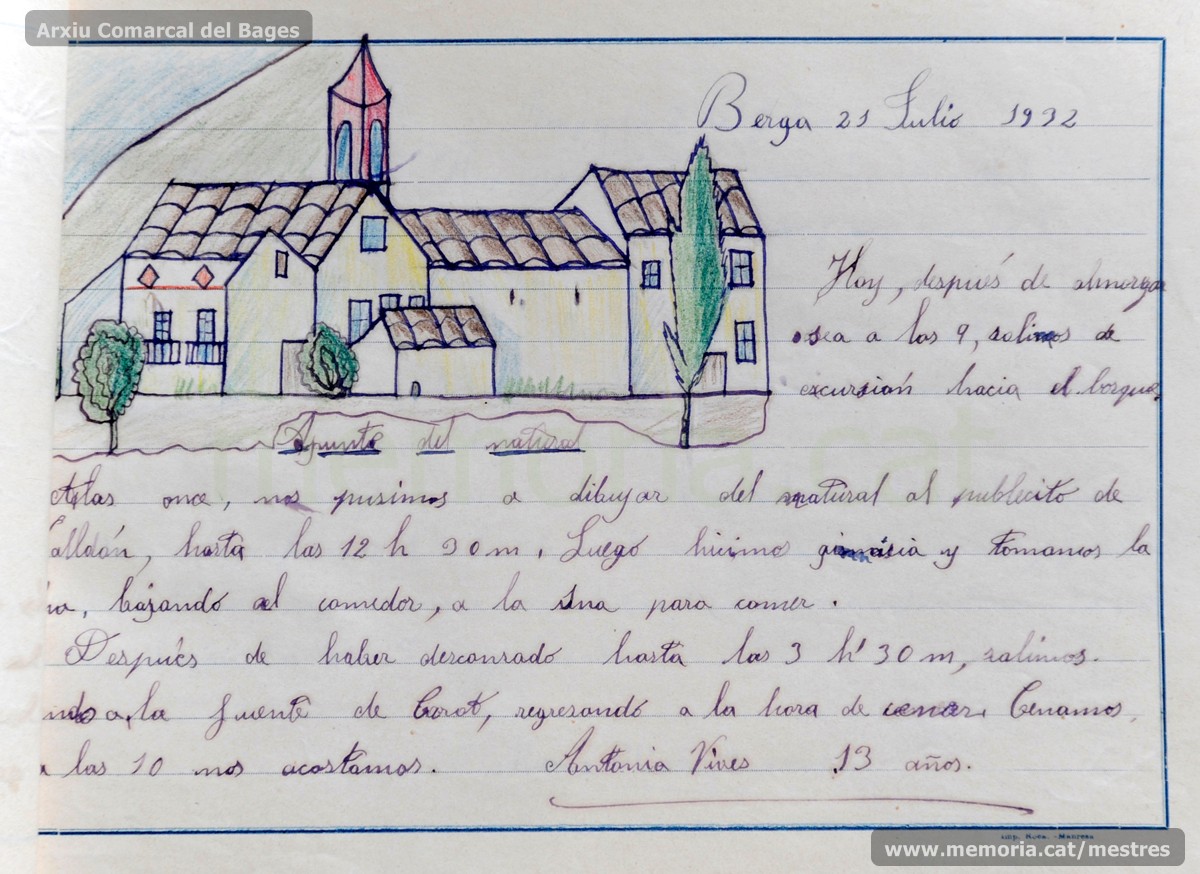 Arxiu Comarcal del Bages
Berga 21 Julio 1932
Hoy, después de almorzar
osea a las 9, salimos de
excursión hacia el bosque,
Apunte del natural
A las once, nos pusimos a dibujar del natural al pueblecito de
hasta las 12 h 30 m. Luego hicimos gimnasia y tomamos la
bajando al comedor, a la una para comer.
Después de haber descansado hasta las 3 h' 30 m, salimos.
a la fuente de regresando a la hora de cenar. Cenamos,
a las 10 nos acostamos. Antonia Vives 13 años.
Imp. Roca. - Manresa
www.memoria.cat/mestres
memoria.cat